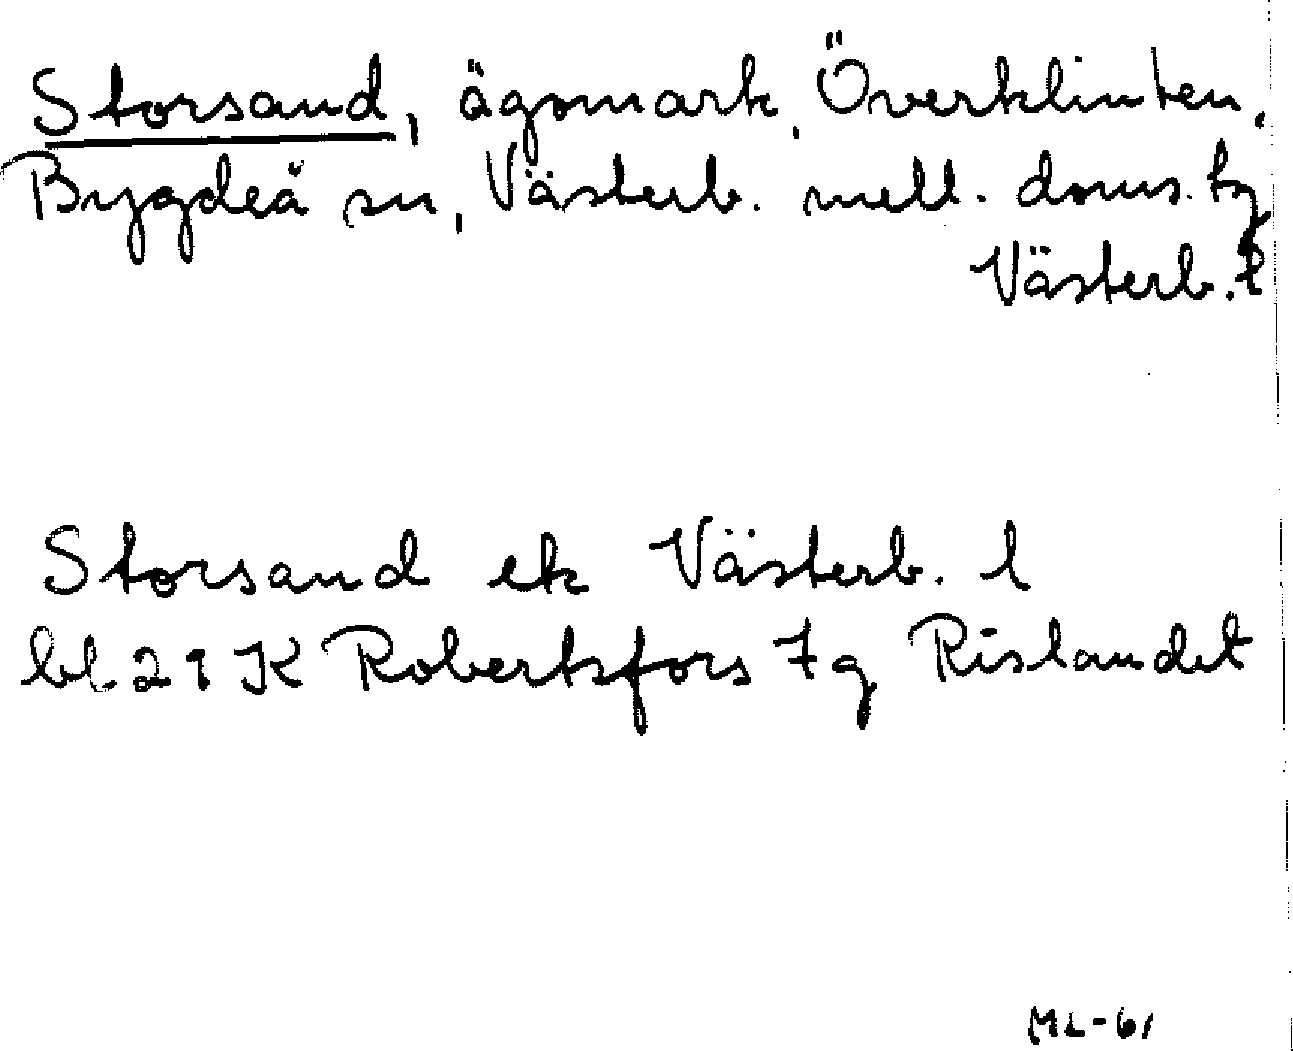 Storsand, ägomark, Överklinten,
Bygdeå sn, Västerb. mell. doms. tg
Västerb. l
Storsand ek Västerb. l
bl 21 K Robertsfors 7 g Rislandet
ML-61